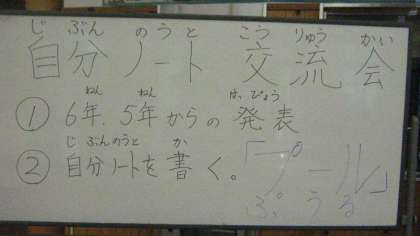 じ ぶん のうと こう りゅう かい
自分ノート 交流会
ねん ねん はっぴょう
① 6年、5年からの 発表
じ ぶんのうと か
② 自分ノートを 書く。
「プール」
ぷうる